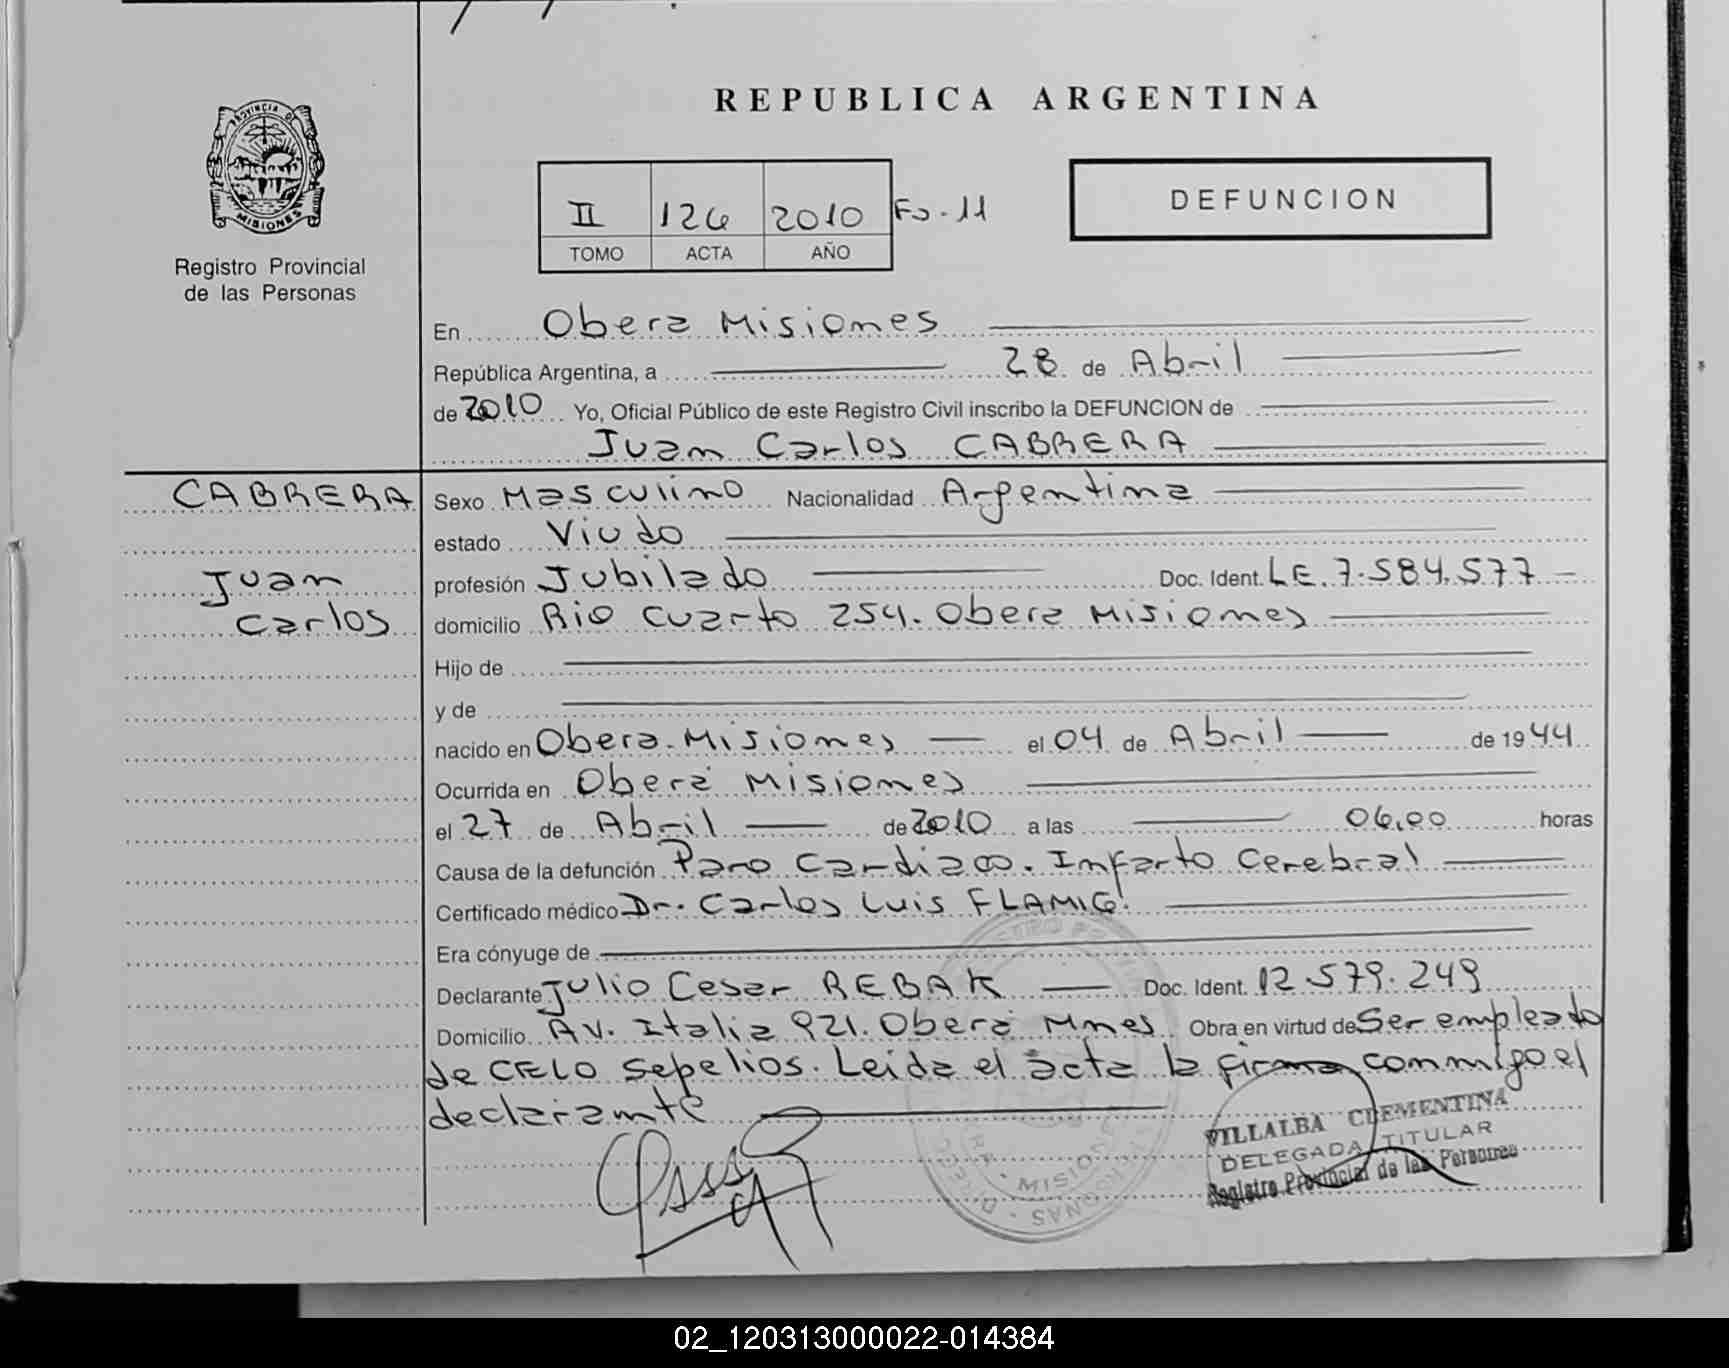 REPUBLICA ARGENTINA
PROVINCIA DE
MISIONES
Registro Provincial
de las Personas
II 126 2010 Fo-11
TOMO ACTA AÑO
DEFUNCION
En Obera Misiones
República Argentina, a 28 de Abril
de 2010 Yo, Oficial Público de este Registro Civil inscribo la DEFUNCION de
Juan Carlos CABRERA
CABRERA
Juan
Carlos
Sexo Masculino Nacionalidad Argentina
estado Viudo
profesión Jubilado Doc. Ident. LE. 7.584.577
domicilio Rio Cuarto 254. Obera Misiones
Hijo de
y de
nacido en Obera. Misiones el 04 de Abril de 1944
Ocurrida en Oberá Misiones
el 27 de Abril de 2010 a las 06,00 horas
Causa de la defunción Paro Cardiaco. Infarto Cerebral
Certificado médico Dr. Carlos Luis FLAMIG.
Era cónyuge de
Declarante Julio Cesar REBAK Doc. Ident. 12.579.249
Domicilio AV. Italia 921. Oberá Mnes Obra en virtud de Ser empleado
de CELO Sepelios. Leida el acta la firma conmigo el
declarante
MISIONES
VILLALBA CLEMENTINA
DELEGADA TITULAR
Registro Provincial de las Personas
02_120313000022-014384